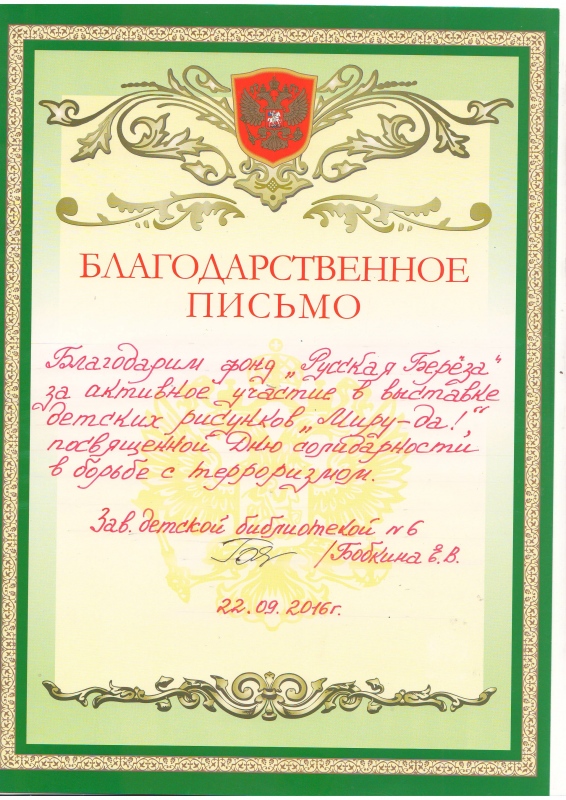 БЛАГОДАРСТВЕННОЕ
ПИСЬМО
Благодарим фонд „Русская Берёза“
за активное участие в выставке
детских рисунков „Миру-да!“,
посвященной Дню солидарности
в борьбе с терроризмом.
Зав. детской библиотекой №6
/Бобкина Е.В.
22.09.2016г.